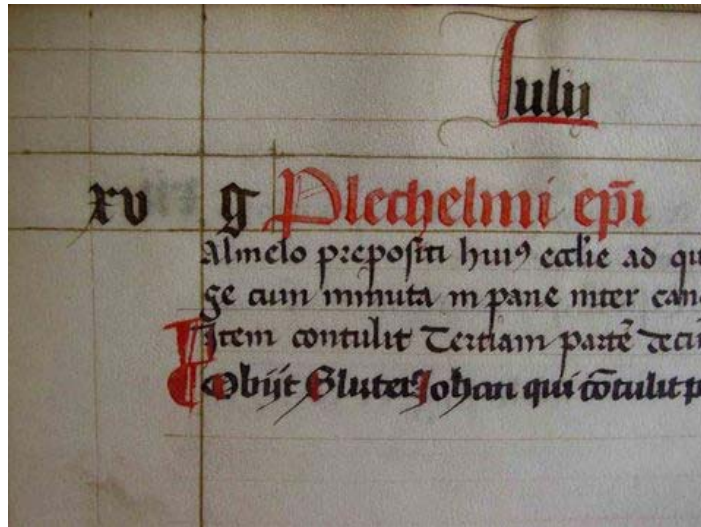 Iulij
xv g Plechelmi ep̄i
Almelo prepositi huiꝰ ecclie ad qu
ge cum minuta in pane inter can
Item contulit Terciam partē deci
Obijt Sluter Johan qui cōtulit p